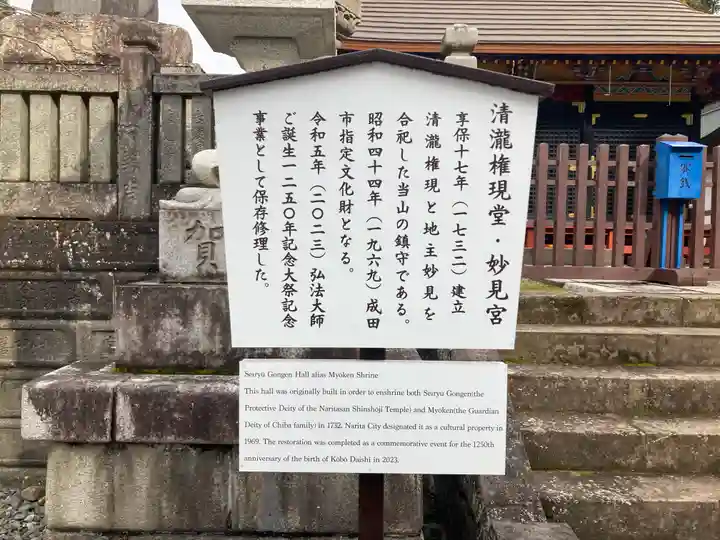 清瀧権現堂・妙見宮
享保十七年（一七三二）建立
清瀧権現と地主妙見を
合祀した当山の鎮守である。
昭和四十四年（一九六九）成田
市指定文化財となる。
令和五年（二〇二三）弘法大師
ご誕生一二五〇年記念大祭記念
事業として保存修理した。
Seiryu Gongen Hall alias Myoken Shrine
This hall was originally built in order to enshrine both Seiryu Gongen(the
Protective Deity of the Naritasan Shinshoji Temple) and Myoken(the Guardian
Deity of Chiba family) in 1732. Narita City designated it as a cultural property in
1969. The restoration was completed as a commemorative event for the 1250th
anniversary of the birth of Kobo Daishi in 2023.
賽銭
賀